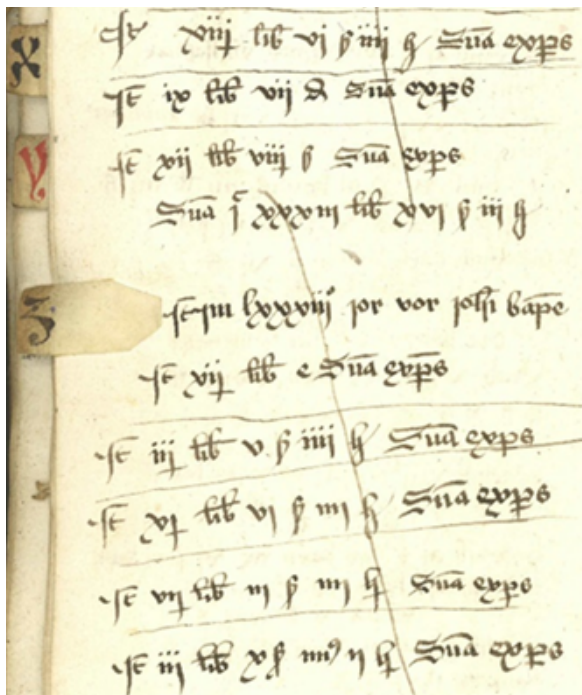 X
It xiiij lib vi ß iiij h Sũa exp̄s
It ix lib vii d Sũa exp̄s
V
It xii lib viij ß Sũa exp̄s
Sũa j xxxiii lib xvi ß iii h
It im lxxxiiiº ior vor ioh̄i bap̄e
It xij lib e Sũa exp̄s
It iij lib v ß iiij h Sũa exp̄s
It xj lib vi ß iiii h Sũa exp̄s
It vij lib iii ß iiii h Sũa exp̄s
It iij lib x ß ii h Sũa exp̄s